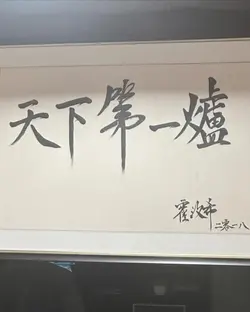 天下第一爐
霍汶希
二零一八